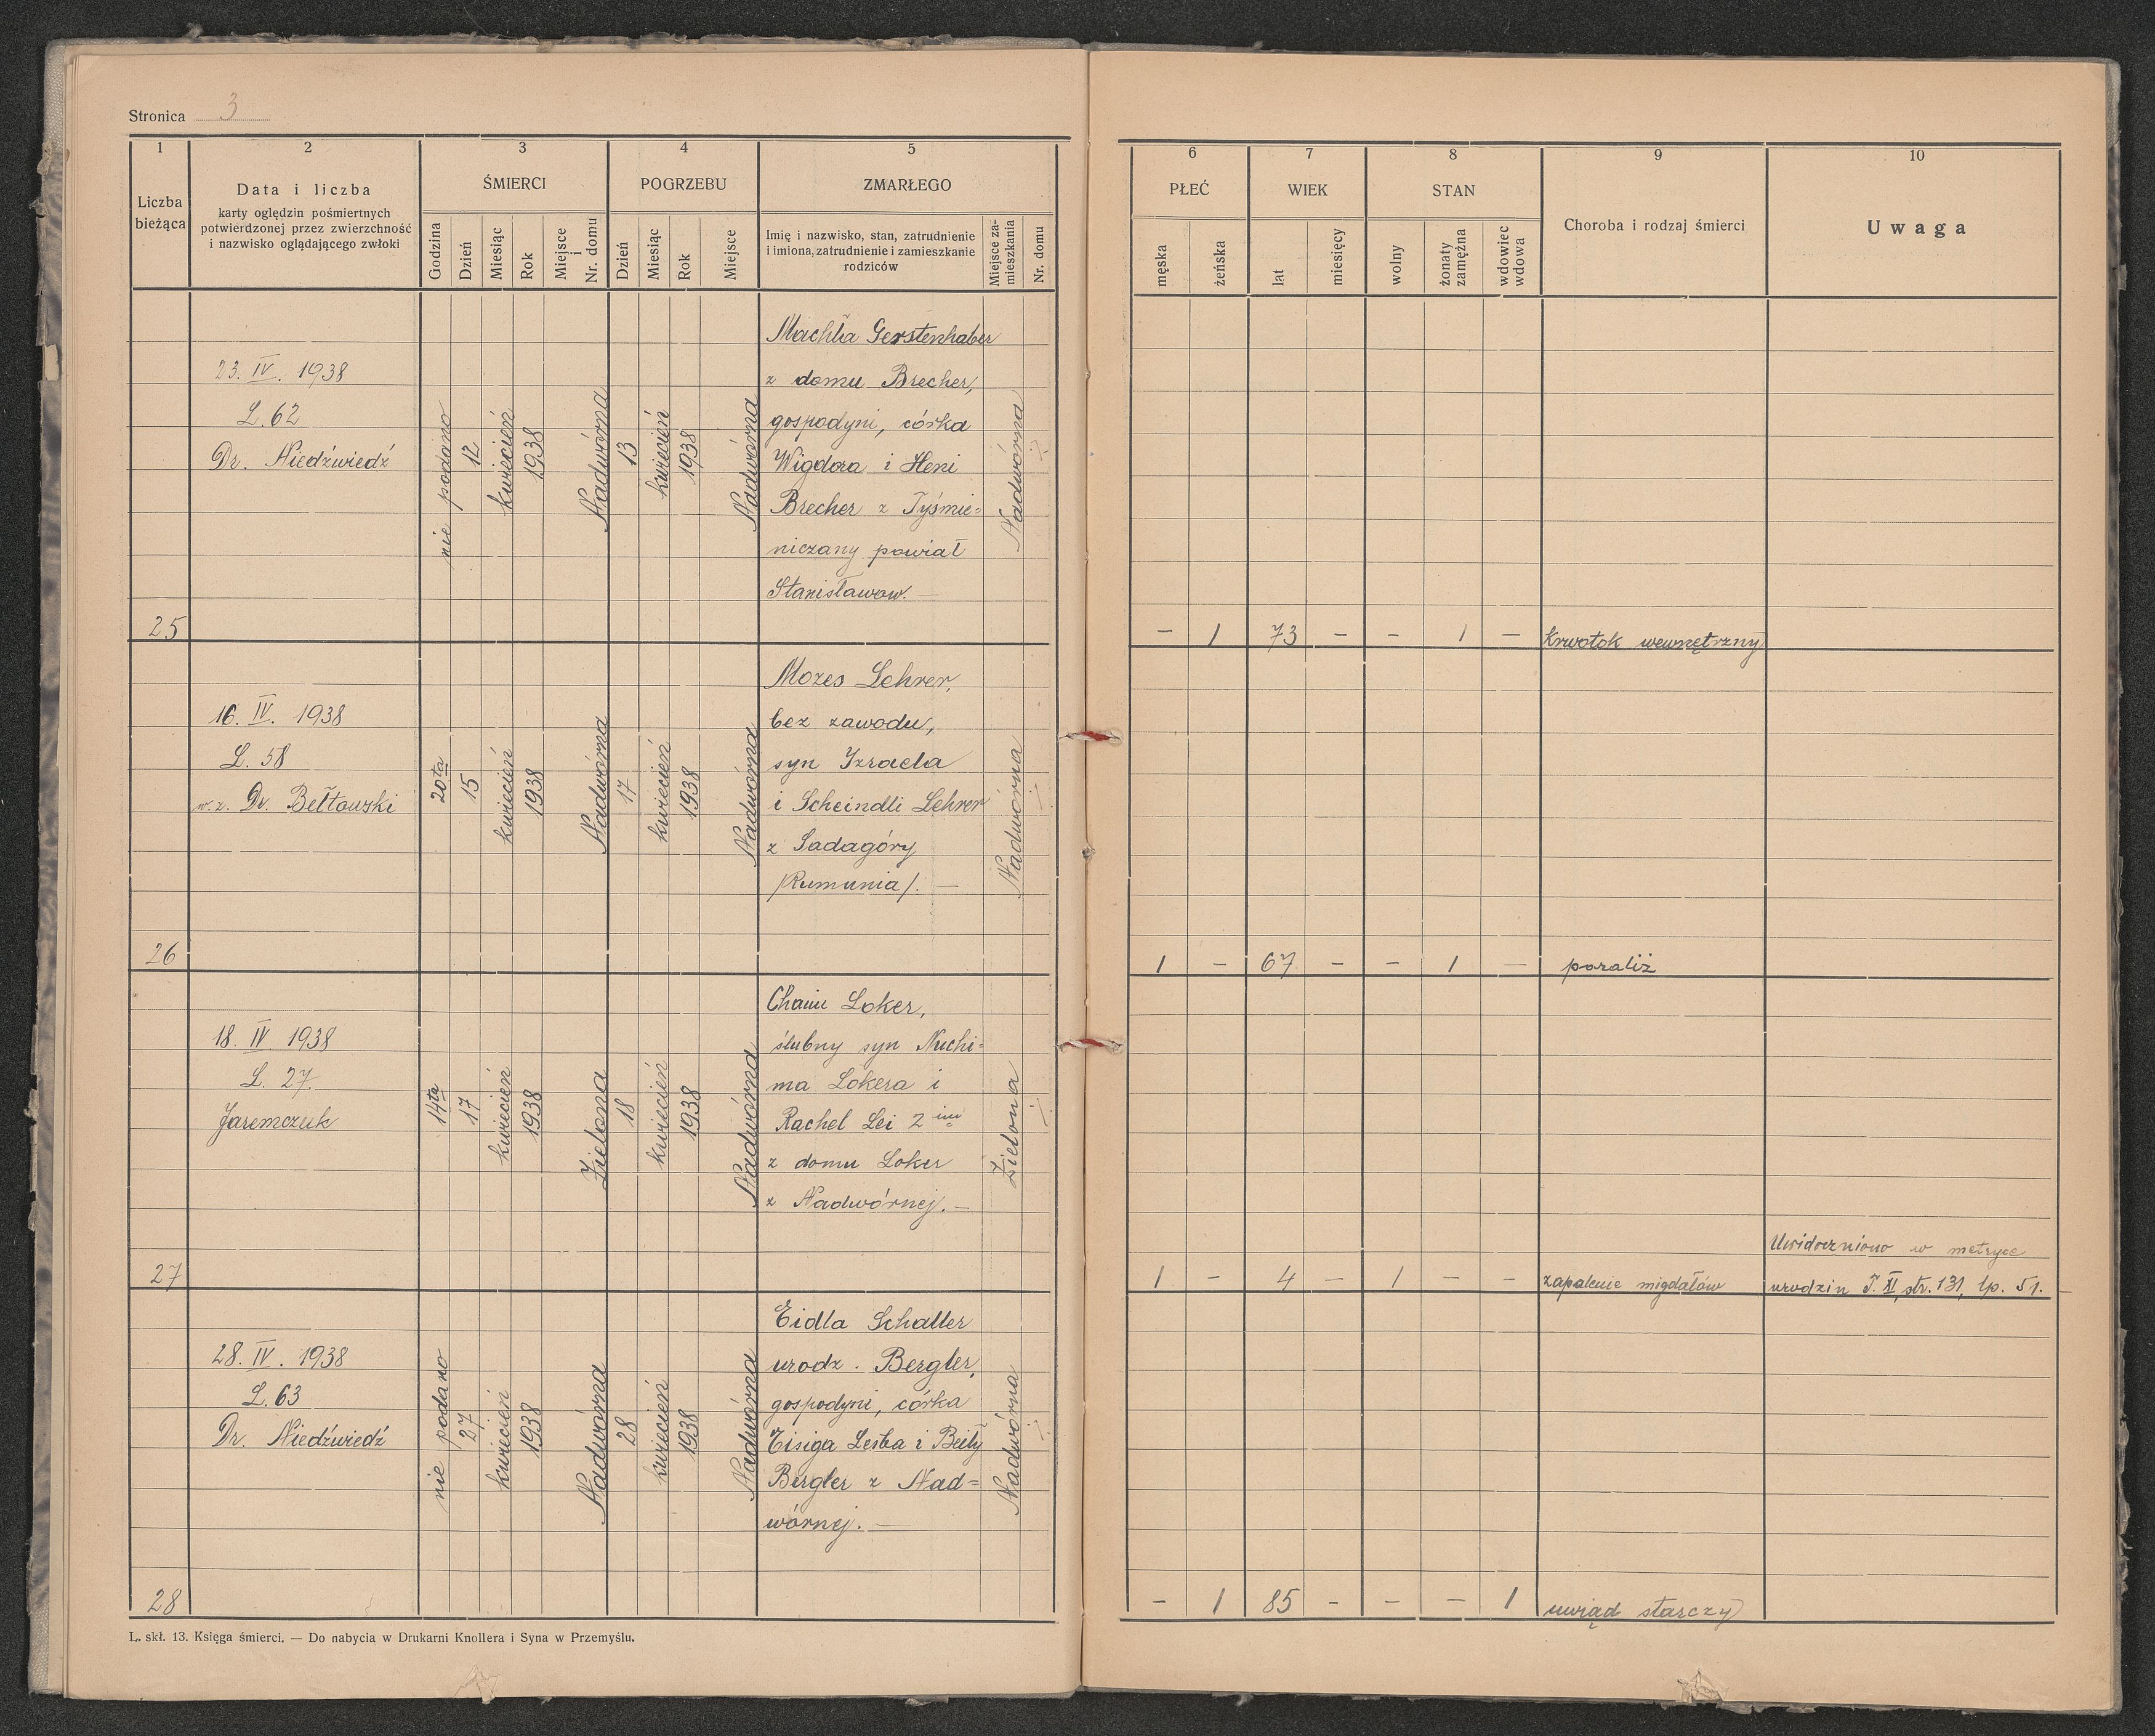 Stronica 3
1
2
3
4
5
6
7
8
9
10
Liczba
bieżąca
Data i liczba
karty oględzin pośmiertnych
potwierdzonej przez zwierzchność
i nazwisko oglądającego zwłoki
ŚMIERCI
Godzina
Dzień
Miesiąc
Rok
Miejsce
i
Nr. domu
POGRZEBU
Dzień
Miesiąc
Rok
Miejsce
ZMARŁEGO
Imię i nazwisko, stan, zatrudnienie
i imiona, zatrudnienie i zamieszkanie
rodziców
Miejsce za-
mieszkania
Nr. domu
PŁEĆ
męska
żeńska
WIEK
lat
miesięcy
STAN
wolny
żonaty
zamężna
wdowiec
wdowa
Choroba i rodzaj śmierci
Uwaga
25
23. IV. 1938
L. 62
Dr. Niedźwiedź
nie podano
12
kwiecień
1938
Nadwórna
13
kwiecień
1938
Nadwórna
Machla Gerstenhaber
z domu Brecher,
gospodyni, córka
Wigdora i Heni
Brecher z Tyśmie=
niczany powiat
Stanisławow. —
Nadwórna
— 1 73 — — 1 —
krwotok wewnętrzny
26
16. IV. 1938
L. 58
w. z. Dr. Bełtowski
20ta
15
kwiecień
1938
Nadwórna
17
kwiecień
1938
Nadwórna
Mozes Lehrer,
bez zawodu,
syn Izraela
i Scheindli Lehrer
z Sadagóry
/Rumunia/. —
Nadwórna
1 — 67 — — 1 —
paraliż
27
18. IV. 1938
L. 27.
Jaremczuk
14ta
17
kwiecień
1938
Zielona
18
kwiecień
1938
Nadwórna
Chaim Loker,
ślubny syn Nuchi=
ma Lokera i
Rachel Lei 2 im
z domu Loker
z Nadwórnej. —
Zielona
1 — 4 — 1 — —
zapalenie migdałów
Uwidoczniono w metryce
urodzin T. XI, str. 131, lp. 51. —
28
28. IV. 1938
L. 63
Dr. Niedźwiedź
nie podano
27
kwiecień
1938
Nadwórna
28
kwiecień
1938
Nadwórna
Eidla Schaller
urodz. Bergler,
gospodyni, córka
Eisiga Leiba i Beily
Bergler z Nad=
wórnej. —
Nadwórna
— 1 85 — — — 1
uwiąd starczy
L. skł. 13. Księga śmierci. — Do nabycia w Drukarni Knollera i Syna w Przemyślu.